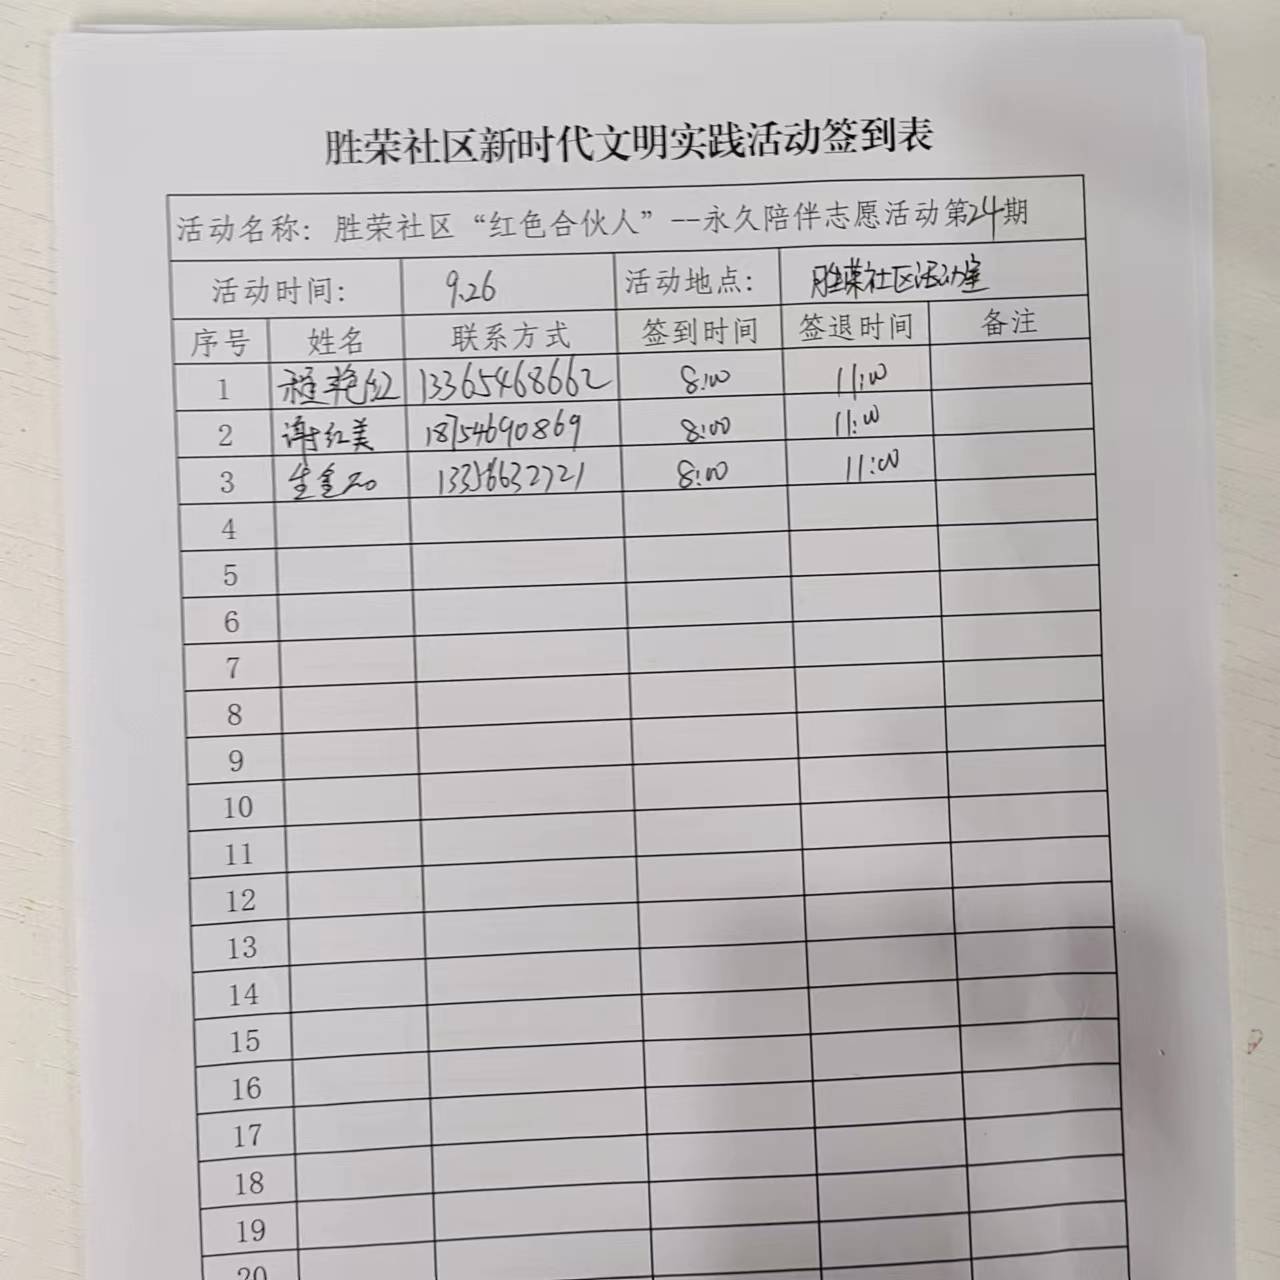 胜荣社区新时代文明实践活动签到表
活动名称：胜荣社区“红色合伙人”--永久陪伴志愿活动第24期
活动时间： 9.26 活动地点： 胜荣社区活动室
序号 姓名 联系方式 签到时间 签退时间 备注
1 程艳红 13365468662 8:00 11:00
2 谢红美 18754690869 8:00 11:00
3 13356632721 8:00 11:00
4
5
6
7
8
9
10
11
12
13
14
15
16
17
18
19
20